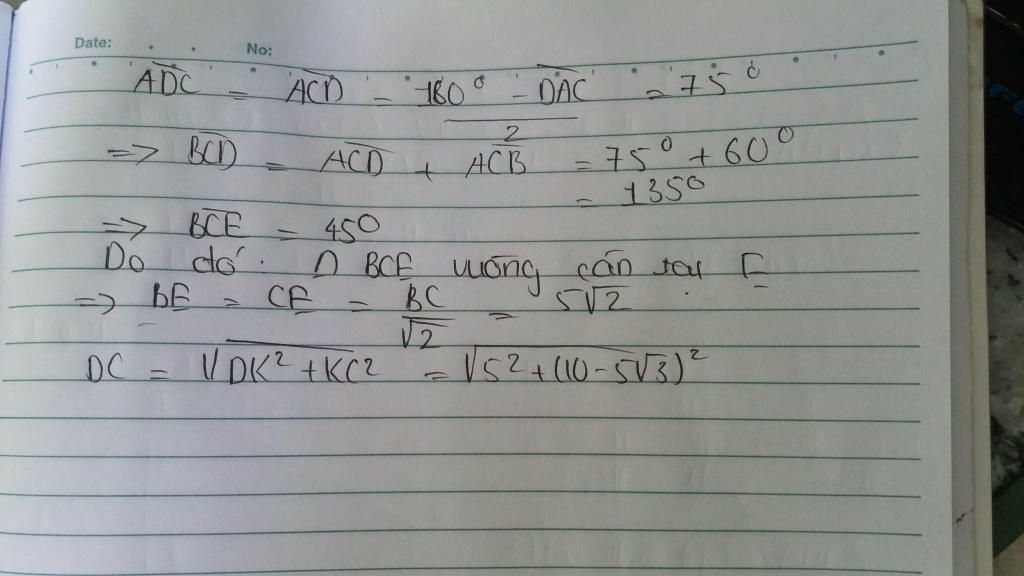 Date: No:
ADC = ACD = 180° - DAC / 2 = 75°
=> BCD = ACD + ACB = 75° + 60°
= 135°
=> BCE = 45°
Do đó: Δ BCE vuông cân tại E
=> BE = CE = BC/√2 = 5√2
DC = √DK² + KC² = √5² + (10 - 5√3)²